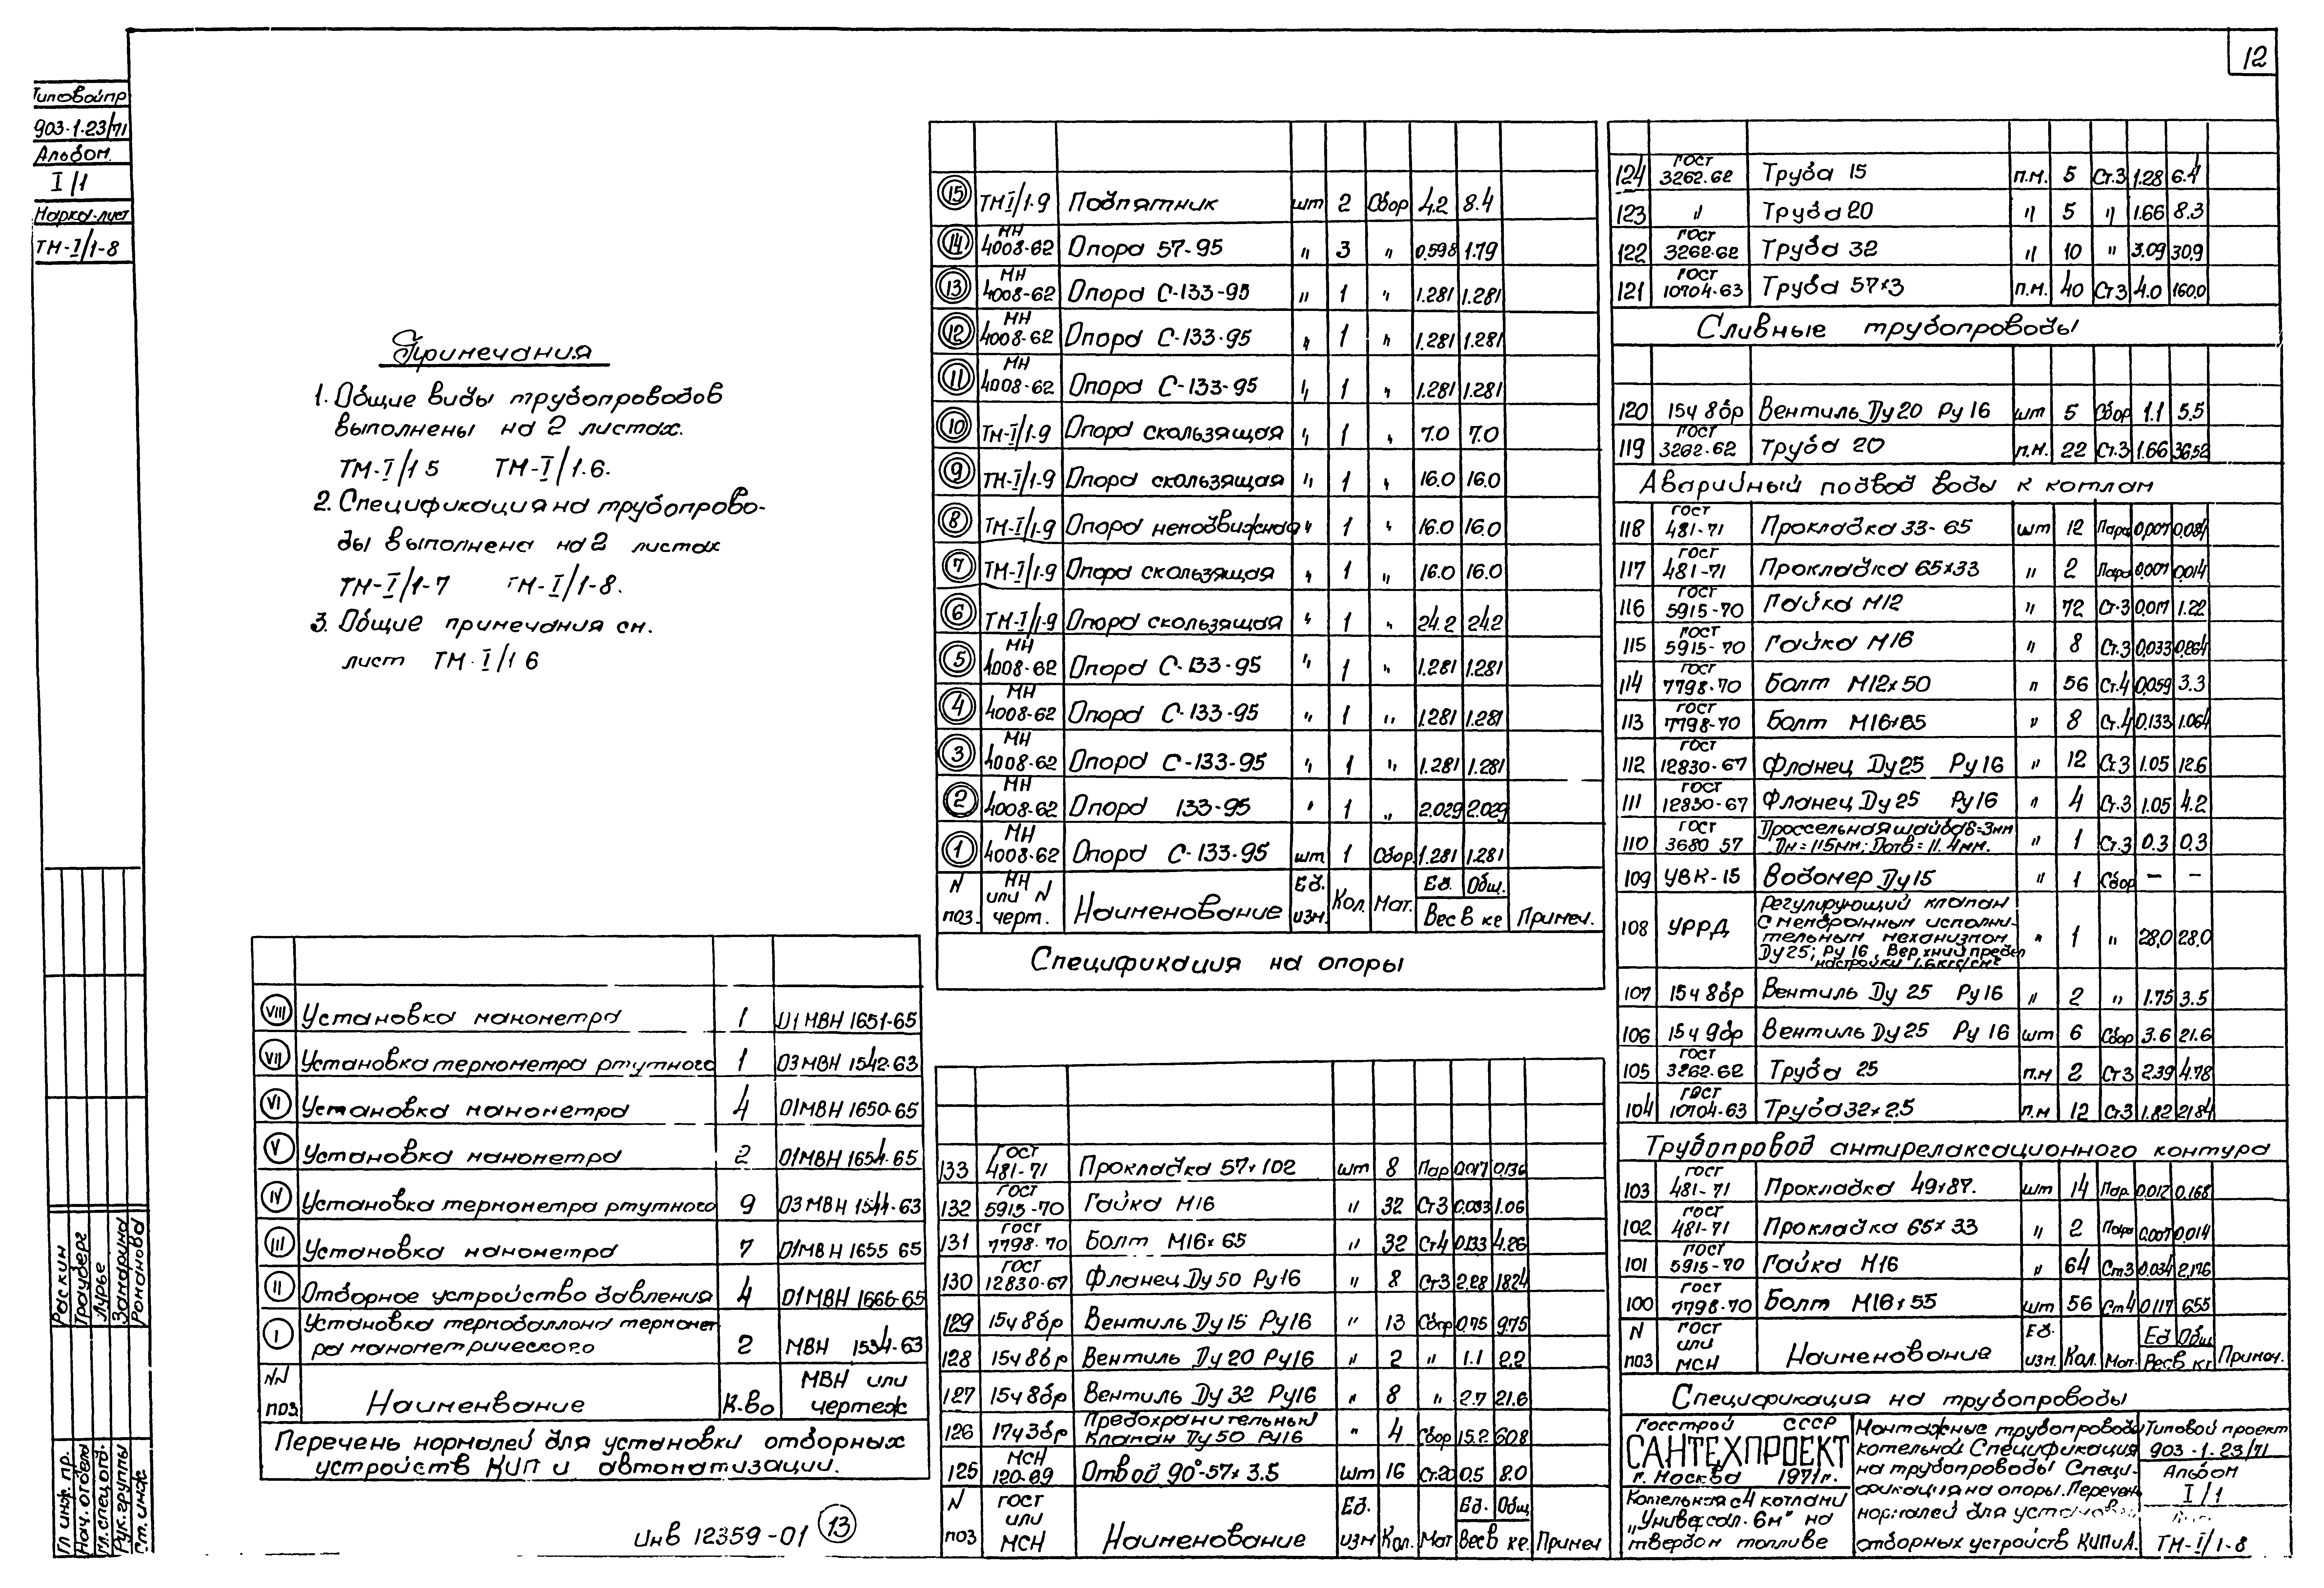 12
Типовой пр
903-1-23/71
Альбом
I/1
Марка-лист
ТМ-I/1-8
Примечания
1. Общие виды трубопроводов
выполнены на 2 листах.
ТМ-I/1 5 ТМ-I/1.6.
2. Спецификация на трубопрово-
ды выполнена на 2 листах
ТМ-I/1-7 ТМ-I/1-8.
3. Общие примечания см.
лист ТМ-I/1 6
VIII Установка манометра 1 01 МВН 1651-65
VII Установка термометра ртутного 1 03 МВН 1542-63
VI Установка манометра 4 01 МВН 1650-65
V Установка манометра 2 01 МВН 1654-65
IV Установка термометра ртутного 9 03 МВН 1544-63
III Установка манометра 7 01 МВН 1655 65
II Отборное устройство давления 4 01 МВН 1666-65
I Установка термобаллона термомет
ра манометрического 2 МВН 1534-63
NN поз. Наименвание К.во МВН или чертеж
Перечень нормалей для установки отборных
устройств КИП и автоматизации.
15 ТМ I/1-9 Подпятник шт 2 Сбор 4.2 8.4
14 МН 4008-62 Опора 57-95 " 3 " 0.598 1.79
13 МН 4008-62 Опора С-133-95 " 1 " 1.281 1.281
12 МН 4008-62 Опора С-133-95 " 1 " 1.281 1.281
11 МН 4008-62 Опора С-133-95 " 1 " 1.281 1.281
10 ТМ-I/1-9 Опора скользящая " 1 " 7.0 7.0
9 ТМ-I/1-9 Опора скользящая " 1 " 16.0 16.0
8 ТМ-I/1-9 Опора неподвижная " 1 " 16.0 16.0
7 ТМ-I/1-9 Опора скользящая " 1 " 16.0 16.0
6 ТМ-I/1-9 Опора скользящая " 1 " 24.2 24.2
5 МН 4008-62 Опора С-133-95 " 1 " 1.281 1.281
4 МН 4008-62 Опора С-133-95 " 1 " 1.281 1.281
3 МН 4008-62 Опора С-133-95 " 1 " 1.281 1.281
2 МН 4008-62 Опора 133-95 " 1 " 2.029 2.029
1 МН 4008-62 Опора С-133-95 шт 1 Сбор 1.281 1.281
N поз. МН или N черт. Наименование Ед. изм. Кол. Мат. Ед. Общ. Вес в кг Примеч.
Спецификация на опоры
133 ГОСТ 481-71 Прокладка 57×102 шт 8 Пар 0.017 0.136
132 ГОСТ 5915-70 Гайка М16 " 32 Ст3 0.033 1.06
131 ГОСТ 7798-70 Болт М16×65 " 32 Ст4 0.133 4.26
130 ГОСТ 12830-67 Фланец Ду 50 Ру16 " 8 Ст3 2.28 18.24
129 15ч 8бр Вентиль Ду 15 Ру16 " 13 Сбор 0.75 9.75
128 15ч 8бр Вентиль Ду 20 Ру16 " 2 " 1.1 2.2
127 15ч 8бр Вентиль Ду 32 Ру16 " 8 " 2.7 21.6
126 17ч 3бр Предохранительный
клапан Ду 50 Ру16 " 4 Сбор 15.2 60.8
125 МСН 120-69 Отвод 90°-57×3.5 шт 16 Ст.20 0.5 8.0
N поз ГОСТ или МСН Наименование Ед. изм Кол. Мат Ед. Общ Вес в кг. Примеч
Инв 12359-01 13
124 ГОСТ 3262-62 Труба 15 п.м. 5 Ст.3 1.28 6.4
123 " Труба 20 " 5 " 1.66 8.3
122 ГОСТ 3262-62 Труба 32 " 10 " 3.09 30.9
121 ГОСТ 10704-63 Труба 57×3 п.м. 40 Ст3 4.0 160.0
Сливные трубопроводы
120 15ч 8бр Вентиль Ду 20 Ру 16 шт 5 Сбор 1.1 5.5
119 ГОСТ 3262-62 Труба 20 п.м. 22 Ст.3 1.66 36.52
Аварийный подвод воды к котлам
118 ГОСТ 481-71 Прокладка 33-65 шт 12 Паро 0.007 0.084
117 ГОСТ 481-71 Прокладка 65×33 " 2 Паро 0.007 0.014
116 ГОСТ 5915-70 Гайка М12 " 72 Ст.3 0.017 1.22
115 ГОСТ 5915-70 Гайка М16 " 8 Ст.3 0.033 0.264
114 ГОСТ 7798-70 Болт М12×50 " 56 Ст.4 0.059 3.3
113 ГОСТ 7798-70 Болт М16×65 " 8 Ст.4 0.133 1.064
112 ГОСТ 12830-67 Фланец Ду 25 Ру16 " 12 Ст.3 1.05 12.6
111 ГОСТ 12830-67 Фланец Ду 25 Ру16 " 4 Ст.3 1.05 4.2
110 ГОСТ 3680 57 Дроссельная шайба δ=3мм
Дн=115мм; Dотв=11.4мм. " 1 Ст.3 0.3 0.3
109 УВК-15 Водомер Ду15 " 1 Сбор - -
108 УРРД Регулирующий клапан
с мембранным исполни-
тельным механизмом
Ду 25; Ру 16, Верхний предел
настройки 1.6 кгс/см² " 1 " 28.0 28.0
107 15ч 8бр Вентиль Ду 25 Ру16 " 2 " 1.75 3.5
106 15ч 9бр Вентиль Ду 25 Ру 16 шт 6 Сбор 3.6 21.6
105 ГОСТ 3262-62 Труба 25 п.м 2 Ст3 2.39 4.78
104 ГОСТ 10704-63 Труба 32×2.5 п.м 12 Ст3 1.82 21.84
Трубопровод антирелаксационного контура
103 ГОСТ 481-71 Прокладка 49×87. шт 14 Пар. 0.012 0.168
102 ГОСТ 481-71 Прокладка 65×33 " 2 Паро 0.007 0.014
101 ГОСТ 5915-70 Гайка М16 " 64 Ст3 0.034 2.176
100 ГОСТ 7798-70 Болт М16×55 шт 56 Ст4 0.117 6.55
N поз ГОСТ или МСН Наименование Ед. изм. Кол. Мат. Ед Общ Вес в кг Примеч.
Спецификация на трубопроводы
Госстрой СССР
САНТЕХПРОЕКТ
г. Москва 1971г.
Котельная с 4 котлами
„Универсал-6м" на
твердом топливе
Монтажные трубопроводы
котельной Спецификация
на трубопроводы Специ-
фикация на опоры. Перечень
нормалей для установки
отборных устройств КИПиА.
Типовой проект
903-1-23/71
Альбом
I/1
ТМ-I/1-8
Гл инж. пр. Раскин
Нач. отдела Трауберг
Гл. спец. отд. Лурье
Рук. группы Замарина
Ст. инж Романова